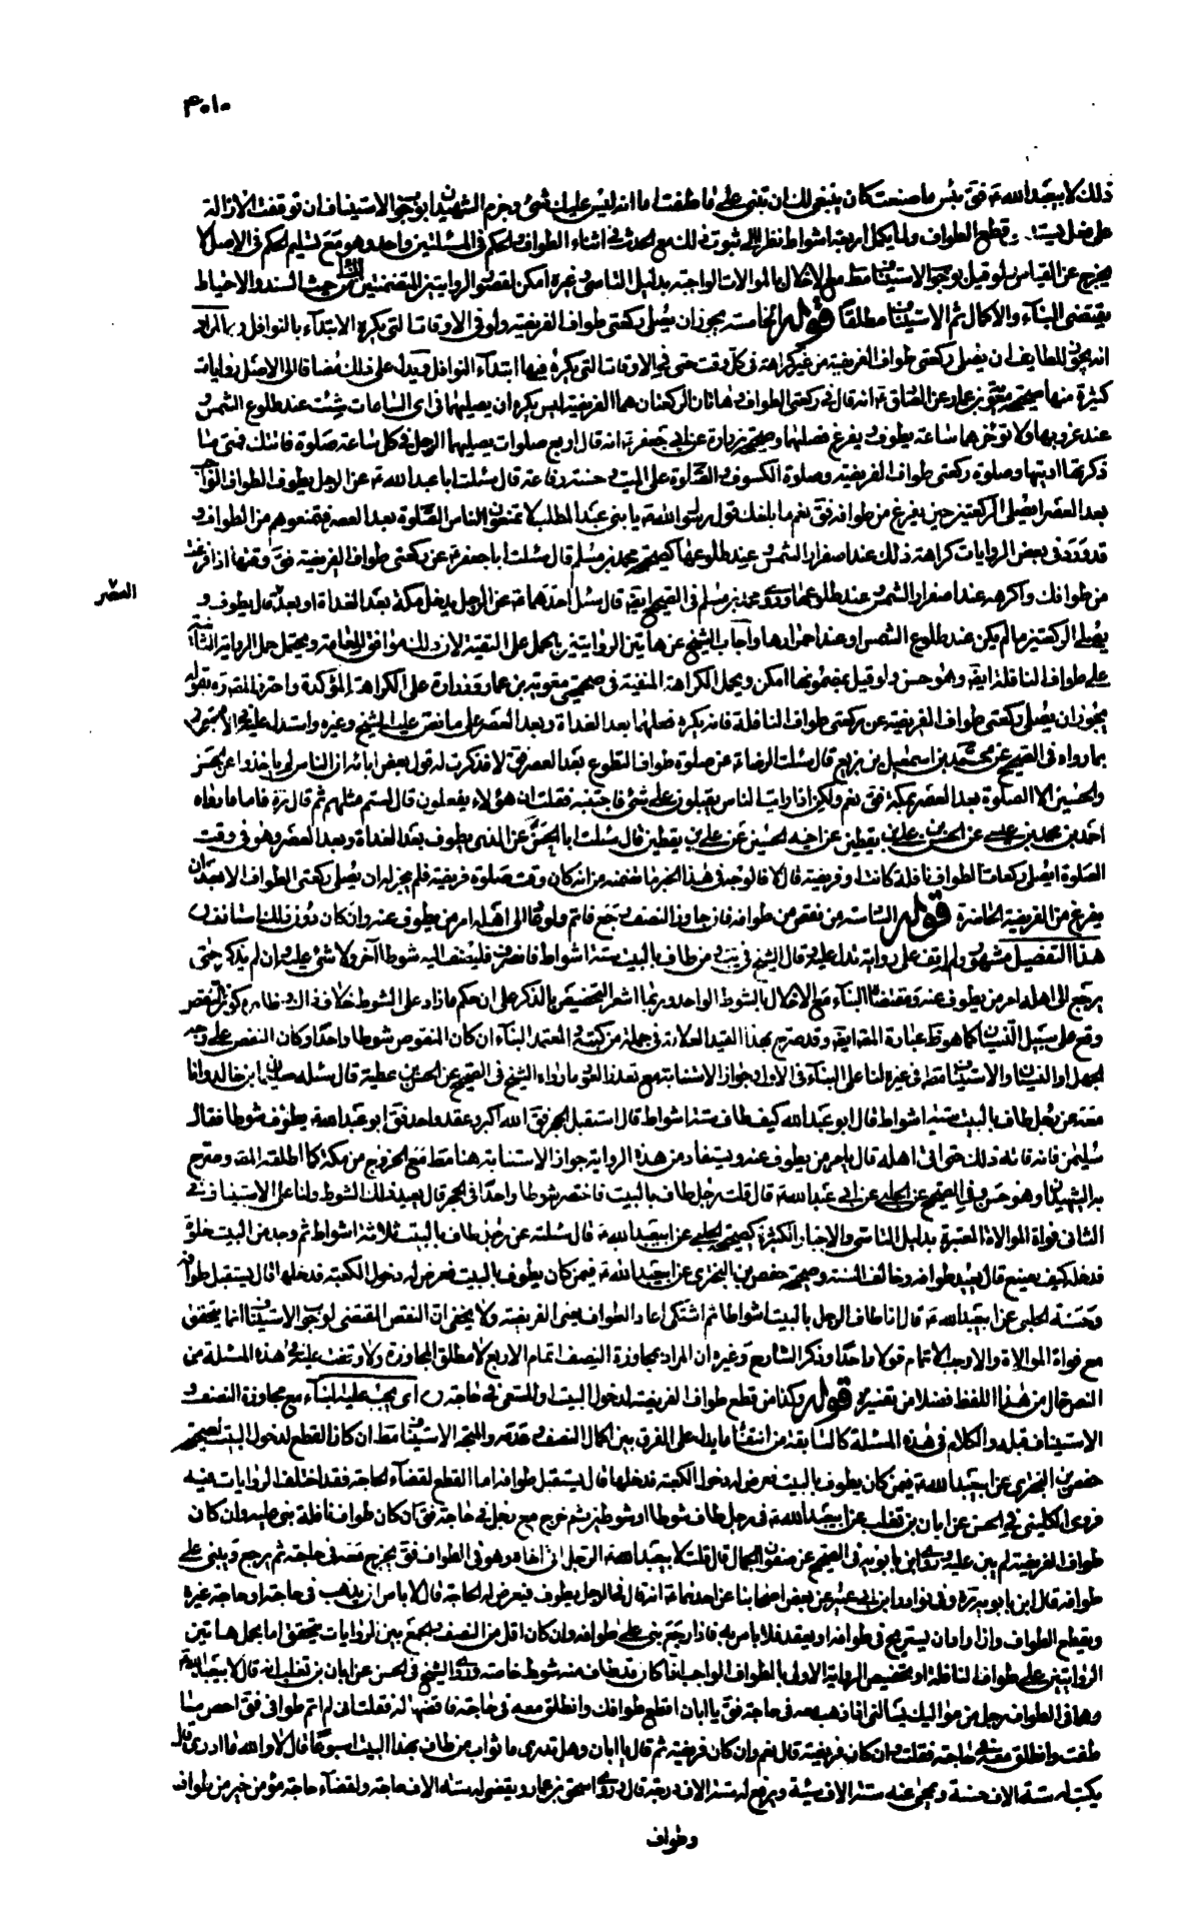 ذلك لابيعبد الله ع فق بئس ما صنعت كان ينبغي لك ان تبني على ما طفت اما انه ليس عليك شئ وجزم الشهيدان بوجوب الاستيناف ان توقفت الازالة
على فعل قطع الطواف ولما يكمل اربعة اشواط نظرا الى ثبوت ذلك مع الحدث في اثناء الطواف والحكم في المسئلتين واحد وهو مع تسليم الحكم في الاصل لا
يخرج عن القياس ولو قيل بوجوب الاستيناف مط مع الاخلال بالموالات الواجبة بدليل التاسي وغيره امكن لقصور الروايتين المتضمنتين من حيث السند والاحتياط
يقتضي البناء والاكمال ثم الاستيناف مطلقا قوله الخامسة يجوز ان يصلي ركعتي طواف الفريضة ولو في الاوقات التي يكره الابتداء بالنوافل المراد
انه يجوز للطايف ان يصلي ركعتي طواف الفريضة من غير كراهة في كل وقت حتى في الاوقات التي يكره فيها ابتداء النوافل ويدل على ذلك مضافا الى الاصل روايات
كثيرة منها صحيحة معوية بن عمار عن الصادق ع انه قال في ركعتي الطواف و هاتان الركعتان هما الفريضة ليس يكره ان يصليهما في اي الساعات شئت عند طلوع الشمس و
عند غروبها ولا تؤخرهما ساعة يطوف و يفرغ فصلهما وصحيحة زرارة عن ابي جعفر ع انه قال اربع صلوات يصليها الرجل في كل ساعة صلوة فاتتك فمتى ما
ذكرتها اديتها وصلوة ركعتي طواف الفريضة وصلوة الكسوف والصلوة على الميت و حسنة رفاعة قال سئلت ابا عبد الله ع عن الرجل يطوف الطواف الواجب
بعد العصر ايصلي الركعتين حين يفرغ من طوافه فق نعم ما بلغك قول رسول الله ص يا بني عبد المطلب لا تمنعوا الناس الصلوة بعد العصر فتمنعوهم من الطواف و
قد ورد في بعض الروايات كراهة ذلك عند اصفرار الشمس و عند طلوعها كصحيحة محمد بن مسلم قال سئلت ابا جعفر ع عن ركعتي طواف الفريضة فق وقتهما اذا فرغت
من طوافك واكرهه عند اصفرار الشمس عند طلوعها وروى محمد بن مسلم في الصحيح ايضه قال سئل احدهما ع عن الرجل يدخل مكة بعد الغداة او بعد قال يطوف و
العصر
يصلي الركعتين ما لم يكن عند طلوع الشمس او عند احمرارها واجاب الشيخ عن هاتين الروايتين بالحمل على التقية لان ذلك موافق للعامة ويحتمل حمل الرواية الثانية
على طواف النافلة ايضه وهو حسن ولو قيل بمضمونها امكن ويحمل الكراهة المنفية في صحيحتي معوية بن عمار وزرارة على الكراهة المؤكدة واحترز المصره بقوله
يجوز ان يصلي ركعتي طواف الفريضة عن ركعتي طواف النافلة فانه يكره فعلهما بعد الغداة وبعد العصر على ما نص عليه الشيخ وغيره واستدل عليه في
بما رواه في الصحيح عن محمد بن اسمعيل بن بزيع قال سئلت الرضا ع عن صلوة طواف التطوع بعد العصر فق لا فذكرت له قول بعض ابائه ان الناس لم ياخذوا عن الحسن
والحسين الا الصلوة بعد العصر بمكة فق نعم ولكن اذا رايت الناس يقبلون على شئ فاجتنبه فقلت ان هؤلاء يفعلون قال لستم مثلهم ثم قال ره فاما ما رواه
احمد بن محمد بن عيسى عن الحسن بن علي بن يقطين عن اخيه الحسين عن علي بن يقطين قال سئلت ابا الحسن عن الذي يطوف بعد الغداة وبعد العصر وهو في وقت
الصلوة ايصلي ركعات الطواف نافلة كانت او فريضة قال لا فالوجه في هذا الخبر ما تضمنه من انه كان وقت صلوة فريضة فلم يجز له ان يصلي ركعتي الطواف الا بعد ان
يفرغ من الفريضة الحاضرة قوله السادسة من نقص من طوافه فان جاوز النصف رجع فاتم ولو عاد الى اهله امر من يطوف عنه وان كان دون ذلك استانف
هذا التفصيل مشهور ولم اقف على رواية تدل عليه و قال الشيخ في يب من طاف بالبيت ستة اشواط فانصرف فليضف اليه شوطا آخر ولا شئ عليه وان لم يذكر حتى
يرجع الى اهله امر من يطوف عنه ومقتضاه البناء مع الاخلال بالشوط الواحد وربما اشعر التخصيص بالذكر على ان حكم ما زاد على الشوط خلاف ذلك و ظاهره كون النقص
وقع على سبيل النسيان كما هو ظ عبارة المص ايضه وقد صرح بهذا القيد العلامة في جملة من كتبه و المعتمد البناء ان كان المنقوص شوطا واحدا وكان النقص على وجه
الجهل او النسيان والاستيناف مط في غيره لنا على البناء في الاول وجواز الاستنابة مع تعذر العود ما رواه الشيخ في الصحيح عن الحسن بن عطية قال سئله سليمان بن خالد وانا
معه عن رجل طاف بالبيت ستة اشواط قال ابو عبد الله كيف طاف ستة اشواط قال استقبل الحجر فق الله اكبر وعقد واحد فق ابو عبد الله ع يطوف شوطا فقال
سليمن فانه فاته ذلك حتى اتى اهله قال يامر من يطوف عنه و يستفاد من هذه الرواية جواز الاستنابة هنا مط مع الخروج من مكة كما اطلقه المص وصرح
به الشهيدان وهو حسن و في الصحيح عن الحلبي عن ابي عبد الله ع قال قلت رجل طاف بالبيت فاختصر شوطا واحدا في الحجر قال يعيد ذلك الشوط ولنا على الاستيناف في
الثاني فواة الموالاة المعتبرة بدليل التاسي والاخبار الكثيرة كصحيحة الحلبي عن ابيعبد الله ع قال سئلته عن رجل طاف بالبيت ثلاثة اشواط ثم وجد من البيت خلوة
فدخله كيف يصنع قال يعيد طوافه وخالف السنة وصحيحة حفص بن البختري عن ابيعبد الله ع فيمن كان يطوف بالبيت فعرض له دخول الكعبة فدخلها قال يستقبل طوافه
وحسنة الحلبي عن ابيعبد الله ع قال اذا طاف الرجل بالبيت اشواطا ثم اشتكى اعاد الطواف يعني الفريضة ولا يخفى ان النقص المقتضي لوجوب الاستيناف انما يتحقق
مع فواة الموالاة والا وجب الاتمام قولا واحدا وذكر الشارح وغيره ان المراد بمجاوزة النصف اتمام الاربع لا مطلق المجاوزة ولا وقفت عليه في هذه المسئلة من
النص خال من هذا اللفظ فضلا من تفسيره قوله وكذا من قطع طواف الفريضة لدخول البيت او السعي في حاجة اى يجب عليه البناء مع مجاوزة النصف و
الاستيناف قبله والكلام في هذه المسئلة كالسابقة من انتفاء ما يدل على الفرق بين اكمال النصف و عدمه والمتجه الاستيناف مط ان كان القطع لدخول البيت لصحيحة
حفص بن البختري عن ابيعبد الله ع فيمن كان يطوف بالبيت فعرض له دخول الكعبة فدخلها قال يستقبل طوافه اما القطع لقضاء الحاجة فقد اختلف الروايات فيه
فروى الكليني في الحسن عن ابان بن تغلب عن ابيعبد الله ع في رجل طاف شوطا او شوطين ثم خرج مع رجل في حاجة فق ان كان طواف نافلة بنى عليه وان كان
طواف الفريضة لم يبن عليه وروى ابن بابويه في الصحيح عن صفوان الجمال قال قلت لابيعبد الله ع الرجل ياتى اخاه وهو في الطواف فق يخرج معه في حاجته ثم يرجع ويبني على
طوافه قال ابن بابويه ره وفي نوادر ابن ابي عمير عن بعض اصحابنا عن احدهما ع انه قال في الرجل يطوف فيعرض له الحاجة قال لا باس ان يذهب في حاجته او حاجة غيره
ويقطع الطواف واذا اراد ان يستريح في طوافه او يقعد فلا باس به فاذا رجع بنى على طوافه وان كان اقل من النصف و الجمع بين الروايات يتحقق اما بحمل هاتين
الروايتين على طواف النافلة او بتخصيص الرواية الاولى بالطواف الواجب اذا كان قد طاف منه شوط خاصة وروى الشيخ في الحسن عن ابان بن تغلب انه قال لابيعبد الله ع
وهو في الطواف رجل من مواليك يسالني ان اذهب معه في حاجة فق يا ابان اقطع طوافك وانطلق معه في حاجة فاقضها له فقلت اني لم اتم طوافي فق احص ما
طفت وانطلق معه في حاجته فقلت وان كان فريضة قال نعم وان كان فريضة ثم قال يا ابان وهل تدري ما ثواب من طاف بهذا البيت اسبوعا قال لا والله ما ادري قال
يكتب له ستة الاف حسنة ويمحى عنه ستة الاف سيئة ويرفع له ستة الاف درجة قال وروى اسحق بن عمار ويقضي له ستة الاف حاجة ولقضاء حاجة مؤمن خير من طواف
وطواف